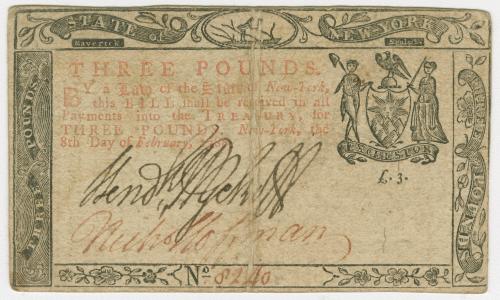 STATE of
NEW-YORK
Maverick
Sculpt.
THREE POUNDS.
BY a LAW of the State of New-York,
this BILL shall be received in all
Payments into the TREASURY, for
THREE POUNDS. New-York, the
8th Day of February, 1788.
EXCELSIOR
£. 3.
THREE POUNDS
THREE POUNDS
No 8240